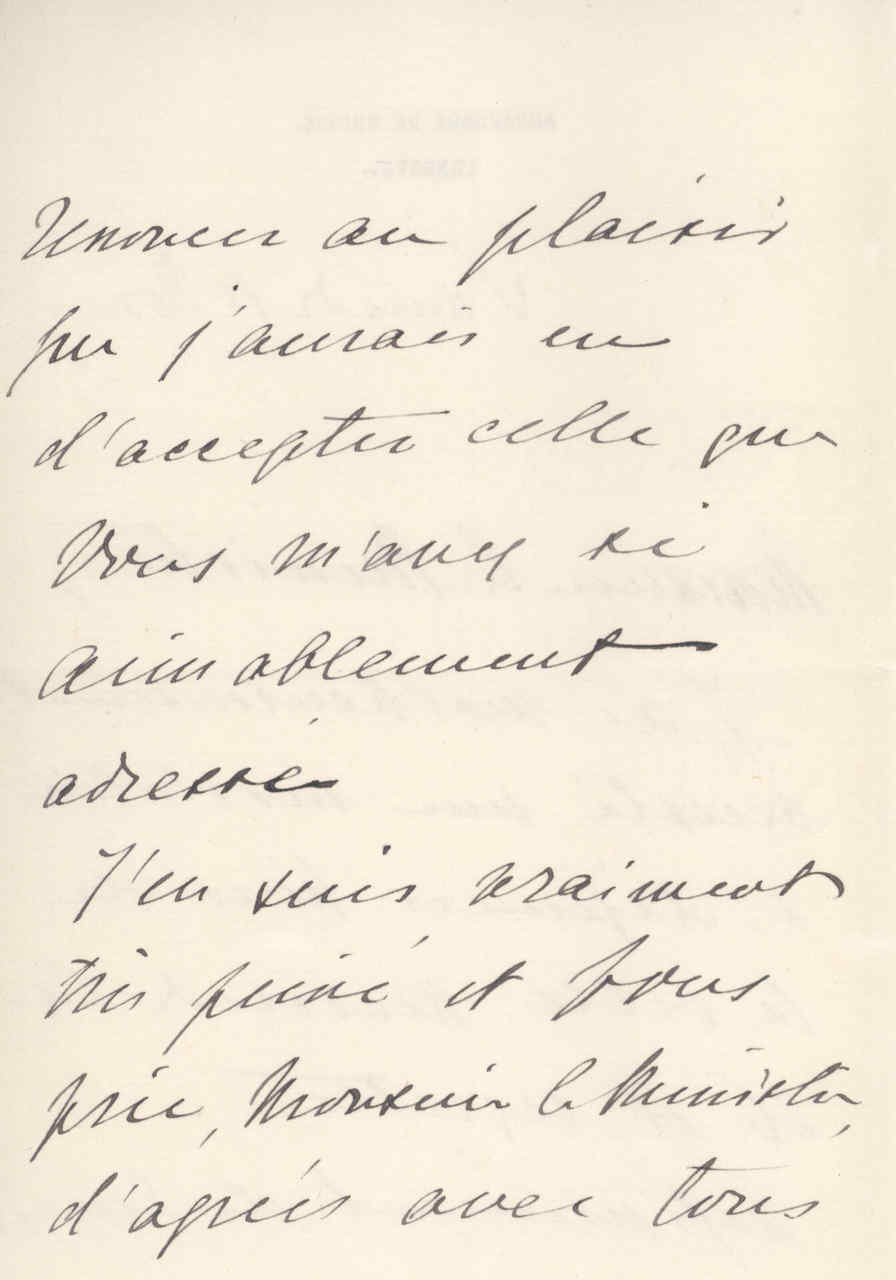 renoncer au plaisir
que j'aurais eu
d'accepter celle que
Vous m'avez si
aimablement
adressée
J'en suis vraiment
très peiné et Vous
prie, Monsieur le Ministre,
d'agréer avec tous